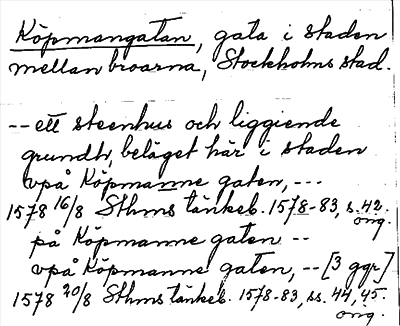 Köpmangatan, gata i staden
mellan broarna, Stockholms stad.
-- ett steenhus och liggiende
grundh, beläget här i staden
vpå Köpmanne gaten, ---
1578 16/8 Sthms tänkeb. 1578-83, s. 42.
orig.
på Köpmanne gaten --
vpå Köpmanne gaten, -- [3 ggr]
1578 20/8 Sthms tänkeb. 1578-83, ss. 44, 45.
orig.